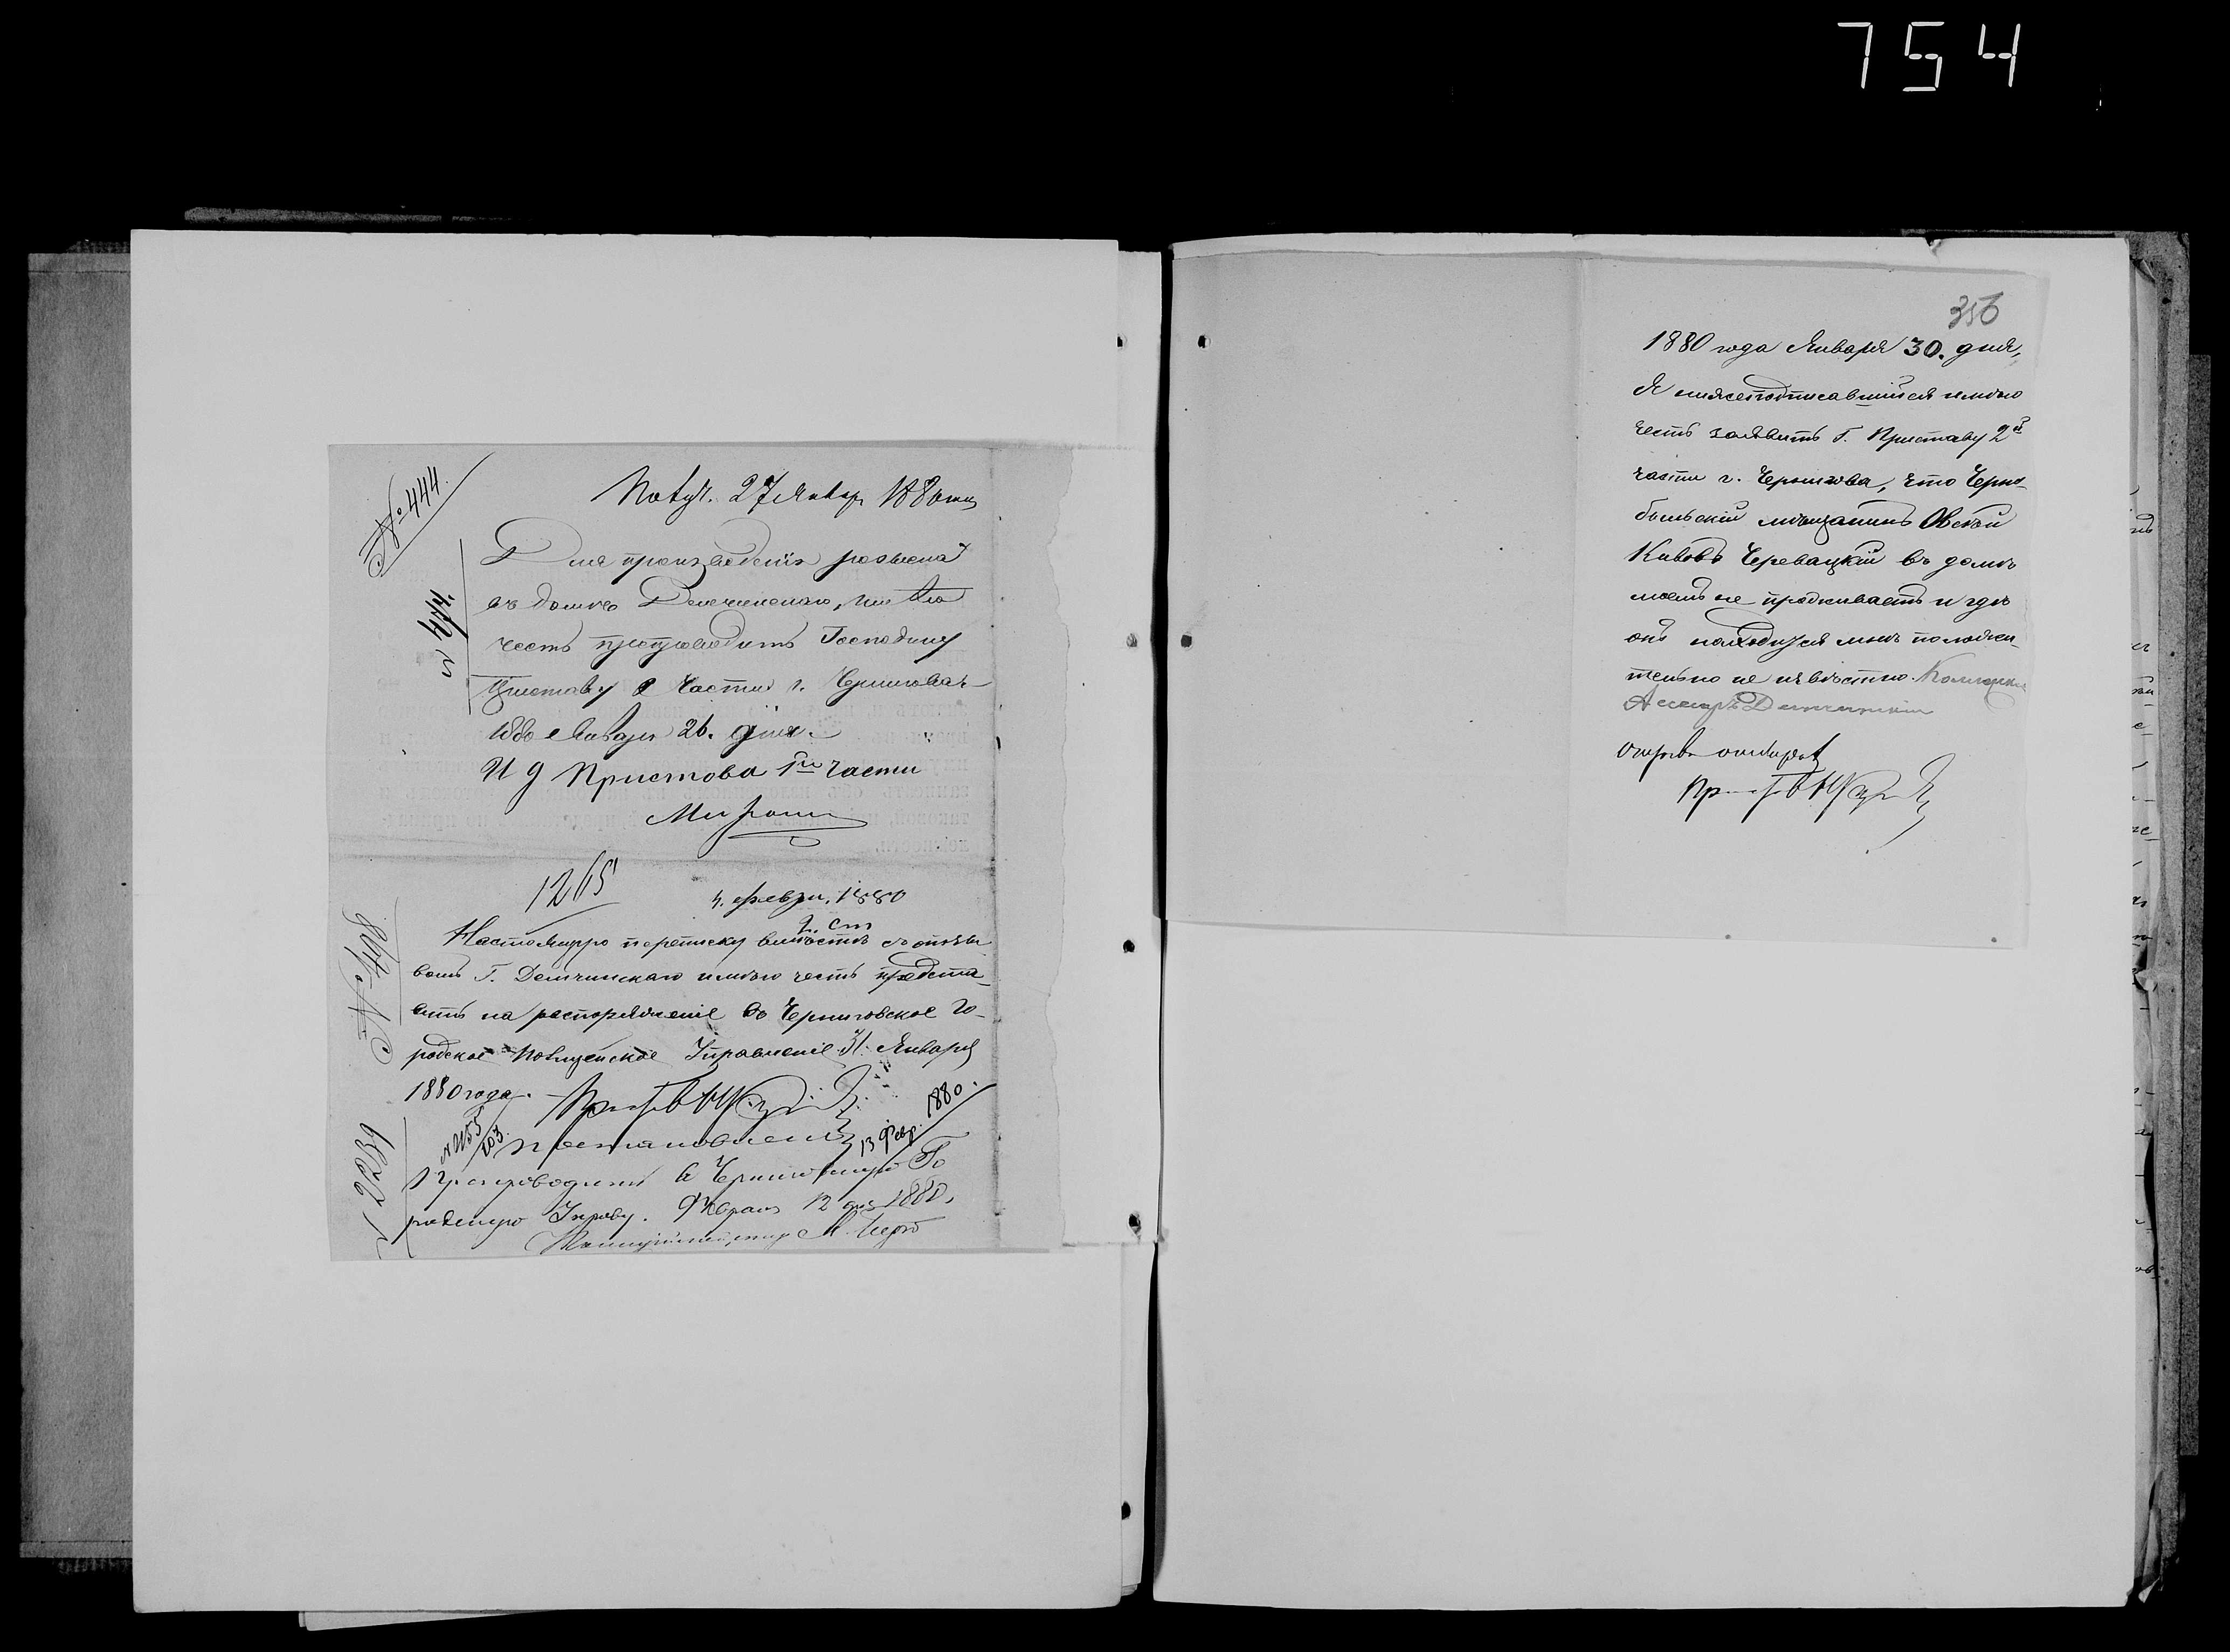 754
№ 444.
Получ. 27 Января 1880 года
№ 444.
Для произведенія розыска
въ домѣ Демчинскаго, имѣю
честь препроводить Господину
Приставу 2 Части г. Чернигова
1880 Января 26. дня.
И д Пристава 1й части
1265
4. Февр. 1880
2. ст
№ 408
Настоящую переписку вмѣстѣ съ отзы
вомъ Г. Демчинскаго имѣю честь предста-
вить на распоряженіе въ Черниговское Го-
родское Полицейское Управленіе 31. Января
1880 года.
Приставъ
№ 455
103.
13 Февр. 1880.
№ 2239
Препроводить въ Черниговскую Го
родскую Управу. Февраля 12 дня 1880.
Полицiймейстеръ М.
356
1880 года Января 30. дня,
Я нижеподписавшийся имѣю
честь заявить Г. Приставу 2й
части г. Чернигова, что Черно-
быльскій мѣщанинъ Овсей
Кивовъ Черевацкій въ домѣ
моемъ не проживаетъ и гдѣ
онъ находится мнѣ положи-
тельно не извѣстно. Колежскій
Асесоръ Демчинскій
отзывъ отобралъ
Приставъ